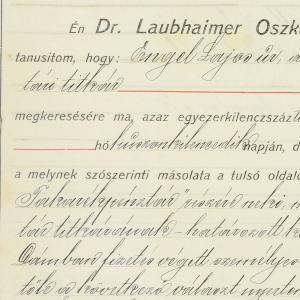 Én Dr. Laubhaimer Oszka
tanusitom, hogy: Engel Lajos úr, a
tári titkár
megkeresésére ma, azaz egyezerkilenczszázt
hó huszonkilencedik napján, d
a melynek szószerinti másolata a tulsó oldalo
Takarékpénztár" részére neki,
tár titkárának - határozott k
Dámban fizetés végett személyes
töle a következö választ nyertem